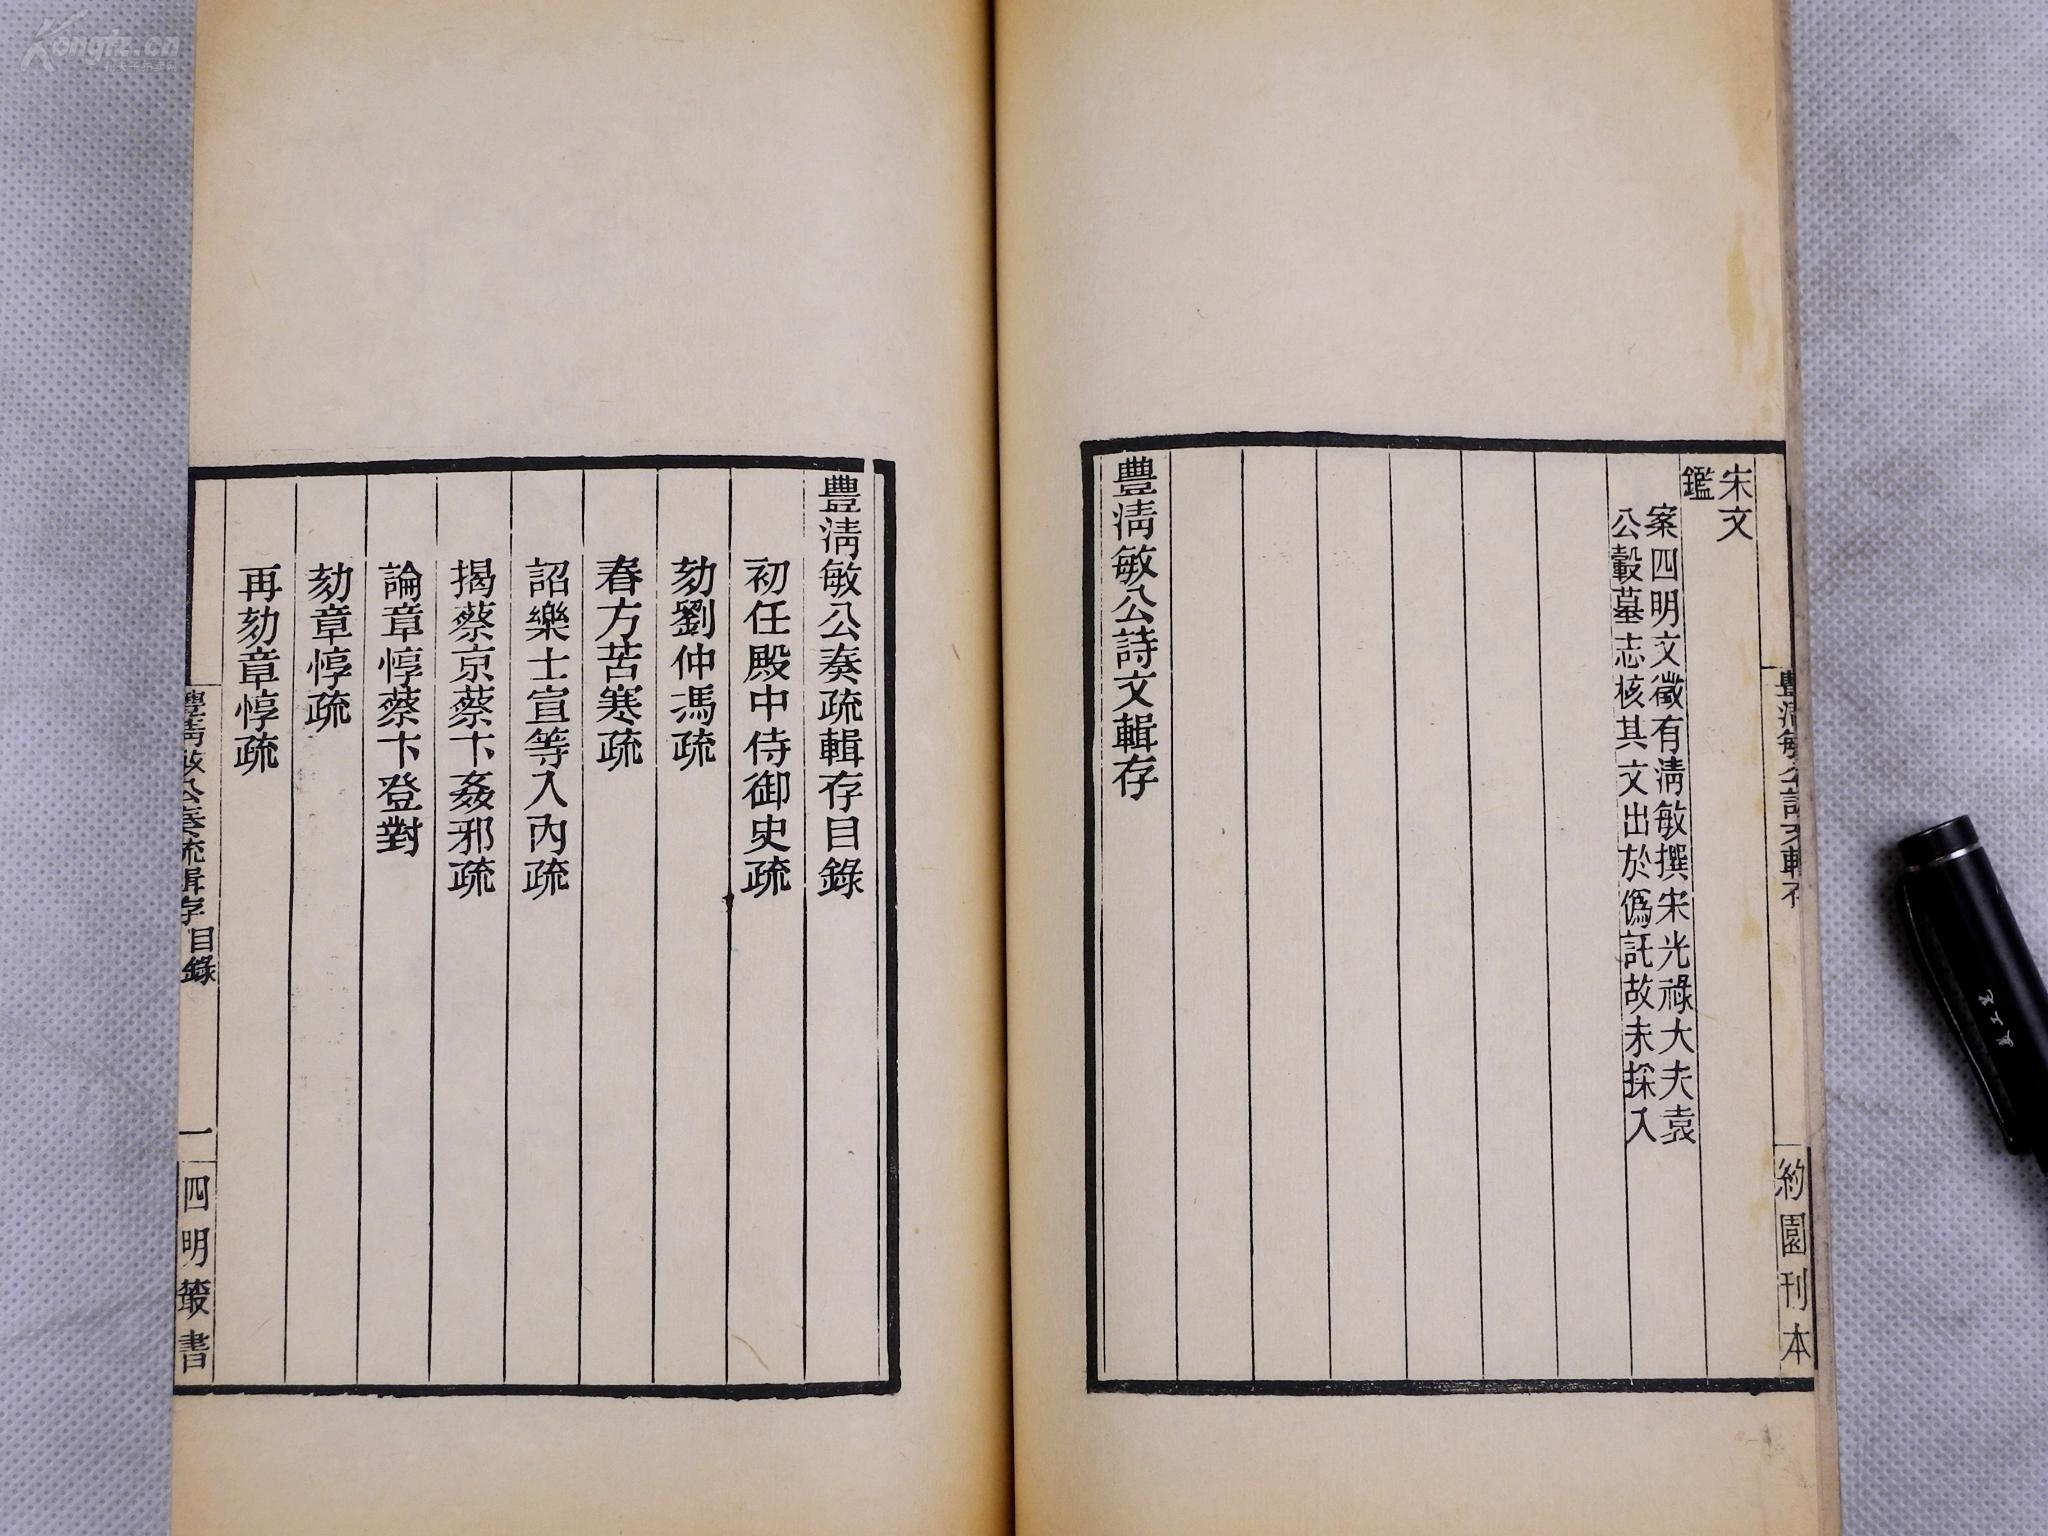 宋文
鑑
案四明文徵有淸敏撰宋光祿大夫袁
公轂墓志核其文出於僞託故未採入
豐淸敏公詩文輯存
豐淸敏公詩文輯存
約園刊本
豐淸敏公奏疏輯存目錄
初任殿中侍御史疏
劾劉仲馮疏
春方苦寒疏
詔樂士宣等入內疏
揭蔡京蔡卞姦邪疏
論章惇蔡卞登對
劾章惇疏
再劾章惇疏
豐淸敏公奏疏輯存目錄
一
四明叢書
Kongfz.cn
孔夫子拍卖网